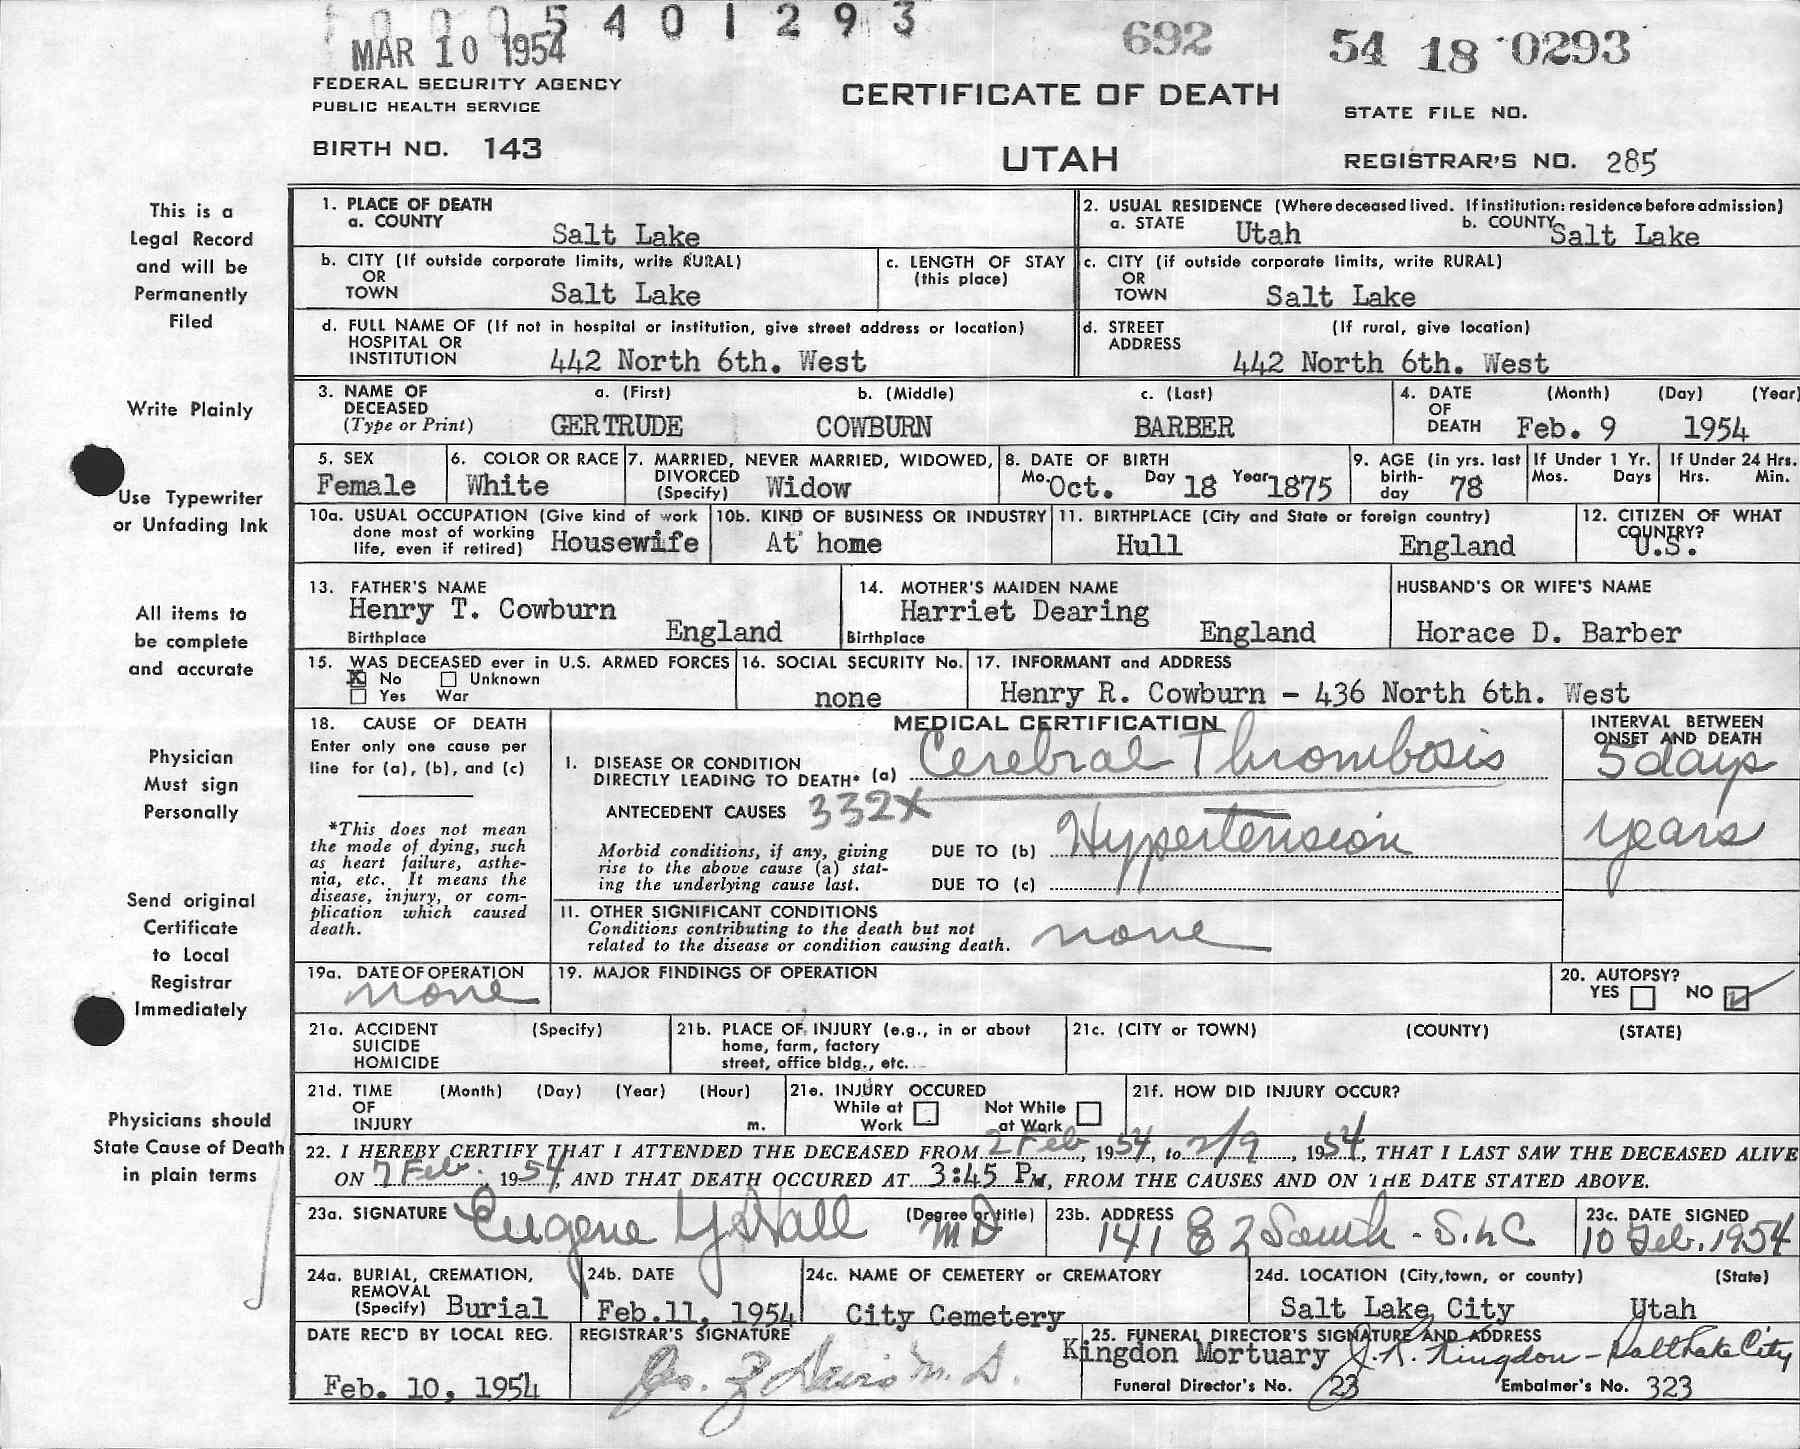 5 4 0 1 2 9 3
MAR 10 1954
692
54 18 0293
FEDERAL SECURITY AGENCY
PUBLIC HEALTH SERVICE
CERTIFICATE OF DEATH
STATE FILE NO.
BIRTH NO. 143
UTAH
REGISTRAR'S NO. 285
This is a
Legal Record
and will be
Permanently
Filed
Write Plainly
Use Typewriter
or Unfading Ink
All items to
be complete
and accurate
Physician
Must sign
Personally
Send original
Certificate
to Local
Registrar
Immediately
Physicians should
State Cause of Death
in plain terms
1. PLACE OF DEATH
a. COUNTY
Salt Lake
2. USUAL RESIDENCE (Where deceased lived. If institution: residence before admission)
a. STATE Utah b. COUNTY Salt Lake
b. CITY (If outside corporate limits, write RURAL)
OR
TOWN Salt Lake
c. LENGTH OF STAY
(this place)
c. CITY (if outside corporate limits, write RURAL)
OR
TOWN Salt Lake
d. FULL NAME OF (If not in hospital or institution, give street address or location)
HOSPITAL OR
INSTITUTION 442 North 6th. West
d. STREET (If rural, give location)
ADDRESS
442 North 6th. West
3. NAME OF a. (First) b. (Middle) c. (Last)
DECEASED
(Type or Print) GERTRUDE COWBURN BARBER
4. DATE (Month) (Day) (Year)
OF
DEATH Feb. 9 1954
5. SEX
Female
6. COLOR OR RACE
White
7. MARRIED, NEVER MARRIED, WIDOWED,
DIVORCED
(Specify) Widow
8. DATE OF BIRTH
Mo. Oct. Day 18 Year 1875
9. AGE (in yrs. last
birth-
day 78
If Under 1 Yr.
Mos. Days
If Under 24 Hrs.
Hrs. Min.
10a. USUAL OCCUPATION (Give kind of work
done most of working
life, even if retired) Housewife
10b. KIND OF BUSINESS OR INDUSTRY
At home
11. BIRTHPLACE (City and State or foreign country)
Hull England
12. CITIZEN OF WHAT
COUNTRY?
U.S.
13. FATHER'S NAME
Henry T. Cowburn
Birthplace England
14. MOTHER'S MAIDEN NAME
Harriet Dearing
Birthplace England
HUSBAND'S OR WIFE'S NAME
Horace D. Barber
15. WAS DECEASED ever in U.S. ARMED FORCES
X No Unknown
Yes War
16. SOCIAL SECURITY No.
none
17. INFORMANT and ADDRESS
Henry R. Cowburn - 436 North 6th. West
18. CAUSE OF DEATH
Enter only one cause per
line for (a), (b), and (c)
*This does not mean
the mode of dying, such
as heart failure, asthe-
nia, etc. It means the
disease, injury, or com-
plication which caused
death.
MEDICAL CERTIFICATION
I. DISEASE OR CONDITION
DIRECTLY LEADING TO DEATH* (a) Cerebral Thrombosis
ANTECEDENT CAUSES 332X
Morbid conditions, if any, giving
rise to the above cause (a) stat-
ing the underlying cause last.
DUE TO (b) Hypertension
DUE TO (c)
INTERVAL BETWEEN
ONSET AND DEATH
5 days
years
II. OTHER SIGNIFICANT CONDITIONS
Conditions contributing to the death but not
related to the disease or condition causing death. none
19a. DATE OF OPERATION
none
19. MAJOR FINDINGS OF OPERATION
20. AUTOPSY?
YES NO ✓
21a. ACCIDENT (Specify)
SUICIDE
HOMICIDE
21b. PLACE OF INJURY (e.g., in or about
home, farm, factory
street, office bldg., etc.
21c. (CITY or TOWN) (COUNTY) (STATE)
21d. TIME (Month) (Day) (Year) (Hour)
OF
INJURY m.
21e. INJURY OCCURED
While at Work Not While at Work
21f. HOW DID INJURY OCCUR?
22. I HEREBY CERTIFY THAT I ATTENDED THE DECEASED FROM 2 Feb, 1954, to 2/9, 1954, THAT I LAST SAW THE DECEASED ALIVE
ON 7 Feb. 1954, AND THAT DEATH OCCURED AT 3:45 PM, FROM THE CAUSES AND ON THE DATE STATED ABOVE.
23a. SIGNATURE Eugene Hall (Degree or title) MD
23b. ADDRESS 141 E 2 South - S.L.C
23c. DATE SIGNED
10 Feb. 1954
24a. BURIAL, CREMATION,
REMOVAL
(Specify) Burial
24b. DATE
Feb. 11, 1954
24c. NAME OF CEMETERY or CREMATORY
City Cemetery
24d. LOCATION (City, town, or county) (State)
Salt Lake City Utah
DATE REC'D BY LOCAL REG.
Feb. 10, 1954
REGISTRAR'S SIGNATURE
Davis M.D.
25. FUNERAL DIRECTOR'S SIGNATURE AND ADDRESS
Kingdon Mortuary Kingdon - Salt Lake City
Funeral Director's No. 23 Embalmer's No. 323